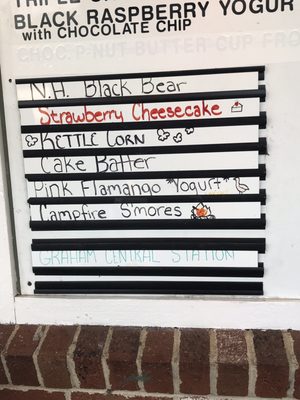 TRIPLE
BLACK RASPBERRY YOGUR
with CHOCOLATE CHIP
CHOC. P-NUT BUTTER CUP FRO
N.H. Black Bear
Strawberry Cheesecake
KETTLE CORN
Cake Batter
Pink Flamango *Yogurt*
Campfire S'mores
GRAHAM CENTRAL STATION